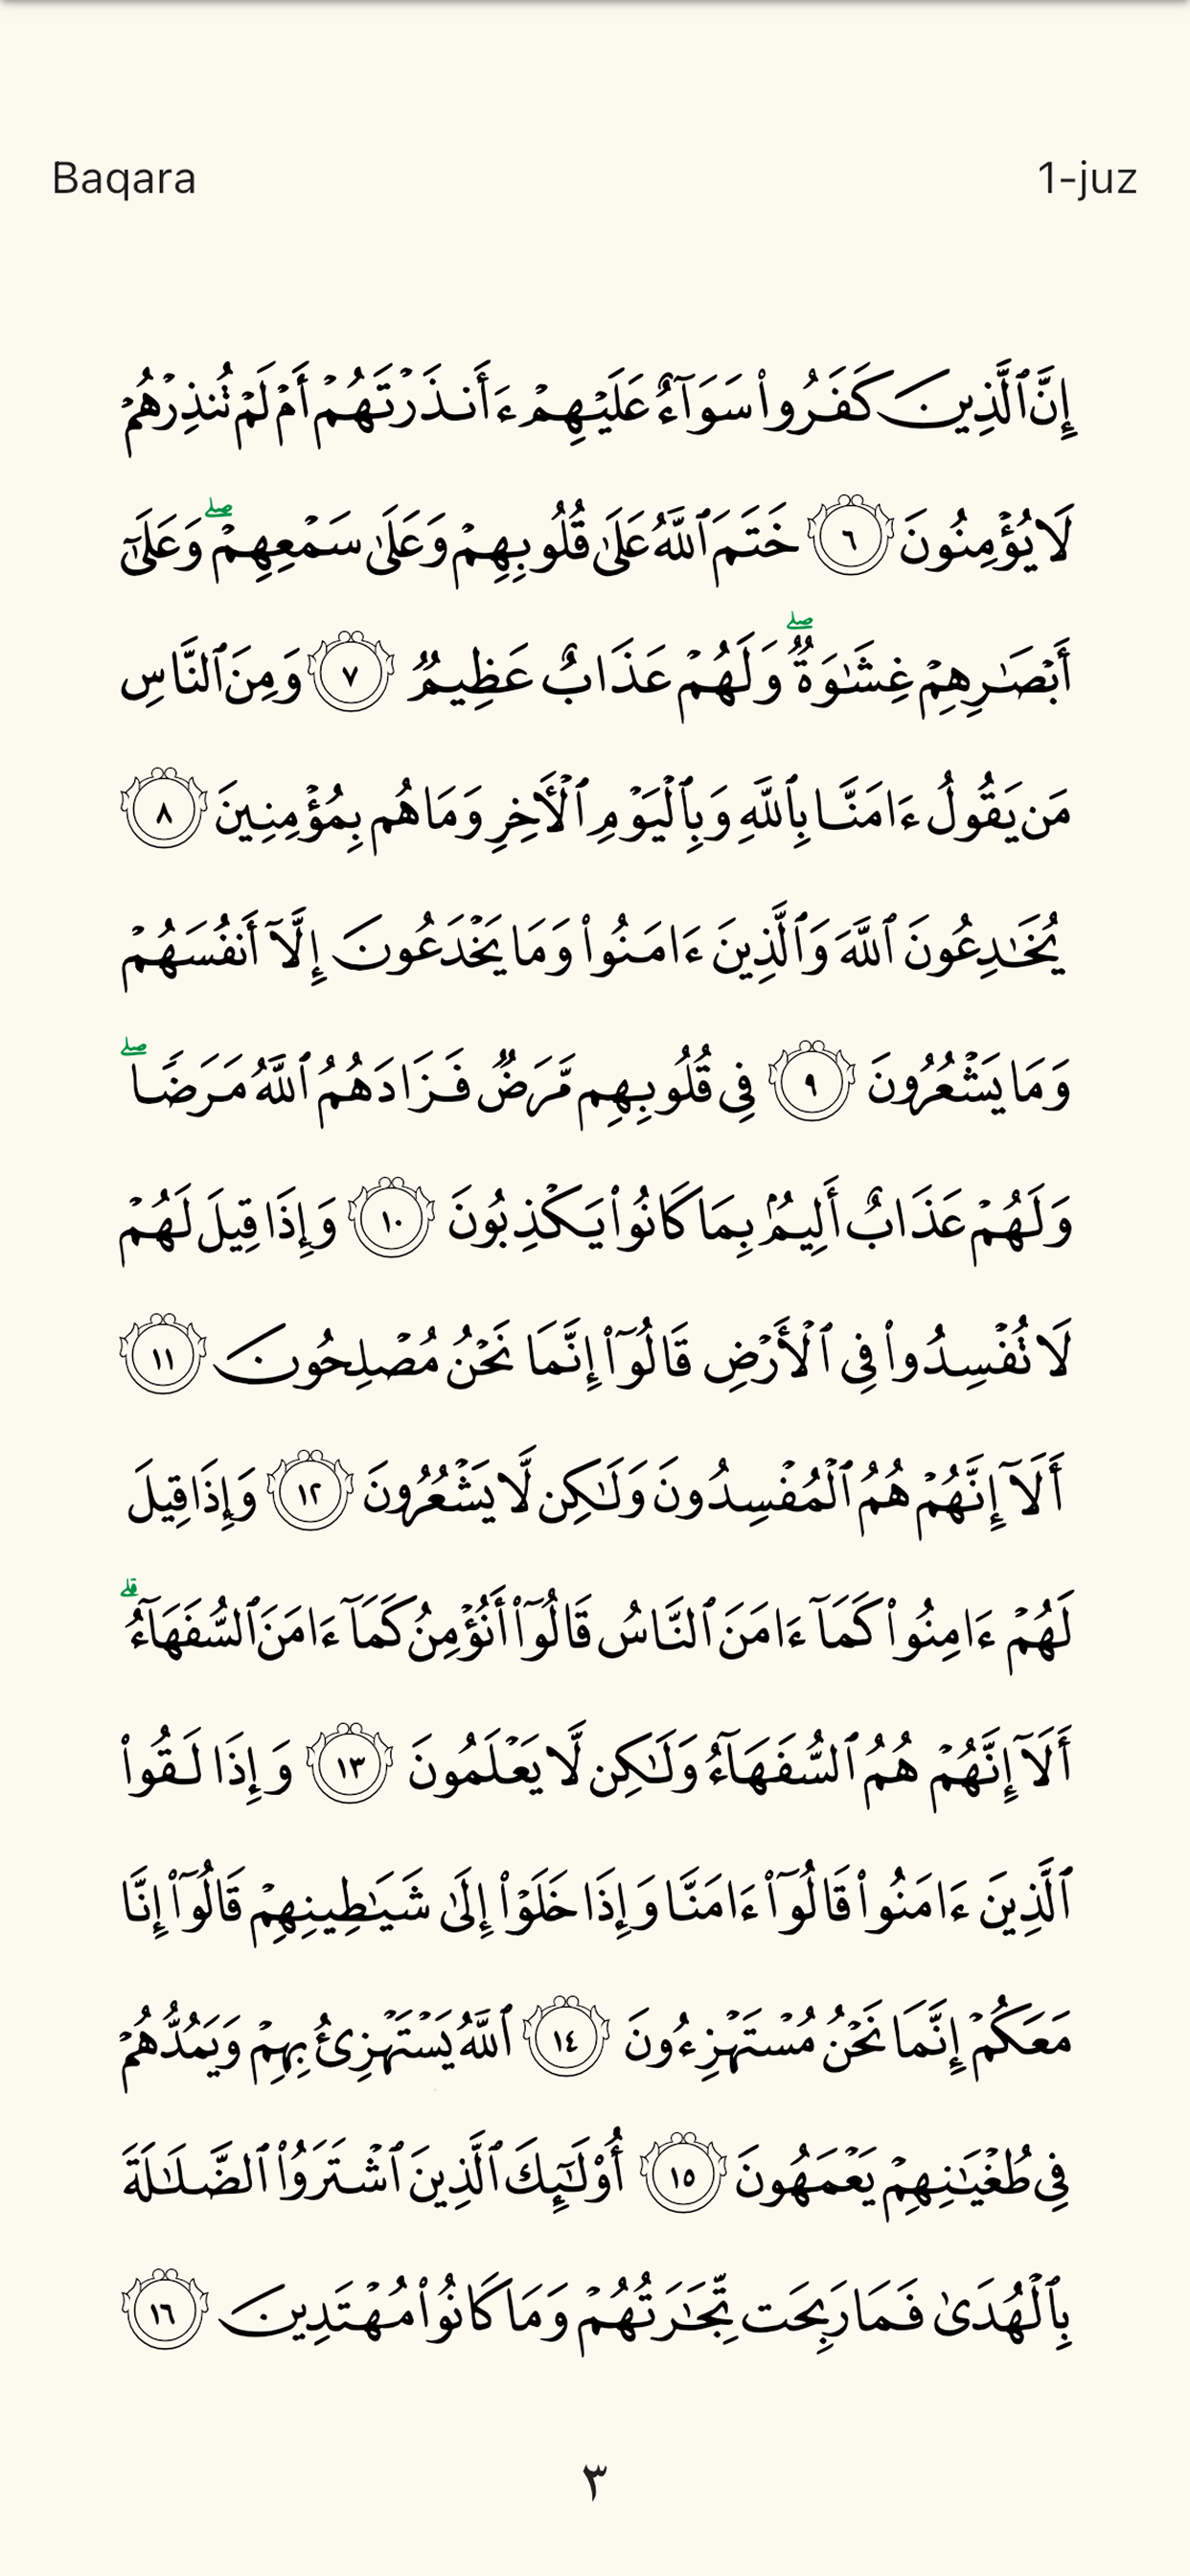 Baqara 1-juz
إِنَّ ٱلَّذِينَ كَفَرُوا۟ سَوَآءٌ عَلَيْهِمْ ءَأَنذَرْتَهُمْ أَمْ لَمْ تُنذِرْهُمْ
لَا يُؤْمِنُونَ ٦ خَتَمَ ٱللَّهُ عَلَىٰ قُلُوبِهِمْ وَعَلَىٰ سَمْعِهِمْ ۖ وَعَلَىٰٓ
أَبْصَـٰرِهِمْ غِشَـٰوَةٌ ۖ وَلَهُمْ عَذَابٌ عَظِيمٌ ٧ وَمِنَ ٱلنَّاسِ
مَن يَقُولُ ءَامَنَّا بِٱللَّهِ وَبِٱلْيَوْمِ ٱلْـَٔاخِرِ وَمَا هُم بِمُؤْمِنِينَ ٨
يُخَـٰدِعُونَ ٱللَّهَ وَٱلَّذِينَ ءَامَنُوا۟ وَمَا يَخْدَعُونَ إِلَّآ أَنفُسَهُمْ
وَمَا يَشْعُرُونَ ٩ فِى قُلُوبِهِم مَّرَضٌ فَزَادَهُمُ ٱللَّهُ مَرَضًا ۖ
وَلَهُمْ عَذَابٌ أَلِيمٌۢ بِمَا كَانُوا۟ يَكْذِبُونَ ١٠ وَإِذَا قِيلَ لَهُمْ
لَا تُفْسِدُوا۟ فِى ٱلْأَرْضِ قَالُوٓا۟ إِنَّمَا نَحْنُ مُصْلِحُونَ ١١
أَلَآ إِنَّهُمْ هُمُ ٱلْمُفْسِدُونَ وَلَـٰكِن لَّا يَشْعُرُونَ ١٢ وَإِذَا قِيلَ
لَهُمْ ءَامِنُوا۟ كَمَآ ءَامَنَ ٱلنَّاسُ قَالُوٓا۟ أَنُؤْمِنُ كَمَآ ءَامَنَ ٱلسُّفَهَآءُ ۗ
أَلَآ إِنَّهُمْ هُمُ ٱلسُّفَهَآءُ وَلَـٰكِن لَّا يَعْلَمُونَ ١٣ وَإِذَا لَقُوا۟
ٱلَّذِينَ ءَامَنُوا۟ قَالُوٓا۟ ءَامَنَّا وَإِذَا خَلَوْا۟ إِلَىٰ شَيَـٰطِينِهِمْ قَالُوٓا۟ إِنَّا
مَعَكُمْ إِنَّمَا نَحْنُ مُسْتَهْزِءُونَ ١٤ ٱللَّهُ يَسْتَهْزِئُ بِهِمْ وَيَمُدُّهُمْ
فِى طُغْيَـٰنِهِمْ يَعْمَهُونَ ١٥ أُو۟لَـٰٓئِكَ ٱلَّذِينَ ٱشْتَرَوُا۟ ٱلضَّلَـٰلَةَ
بِٱلْهُدَىٰ فَمَا رَبِحَت تِّجَـٰرَتُهُمْ وَمَا كَانُوا۟ مُهْتَدِينَ ١٦
٣